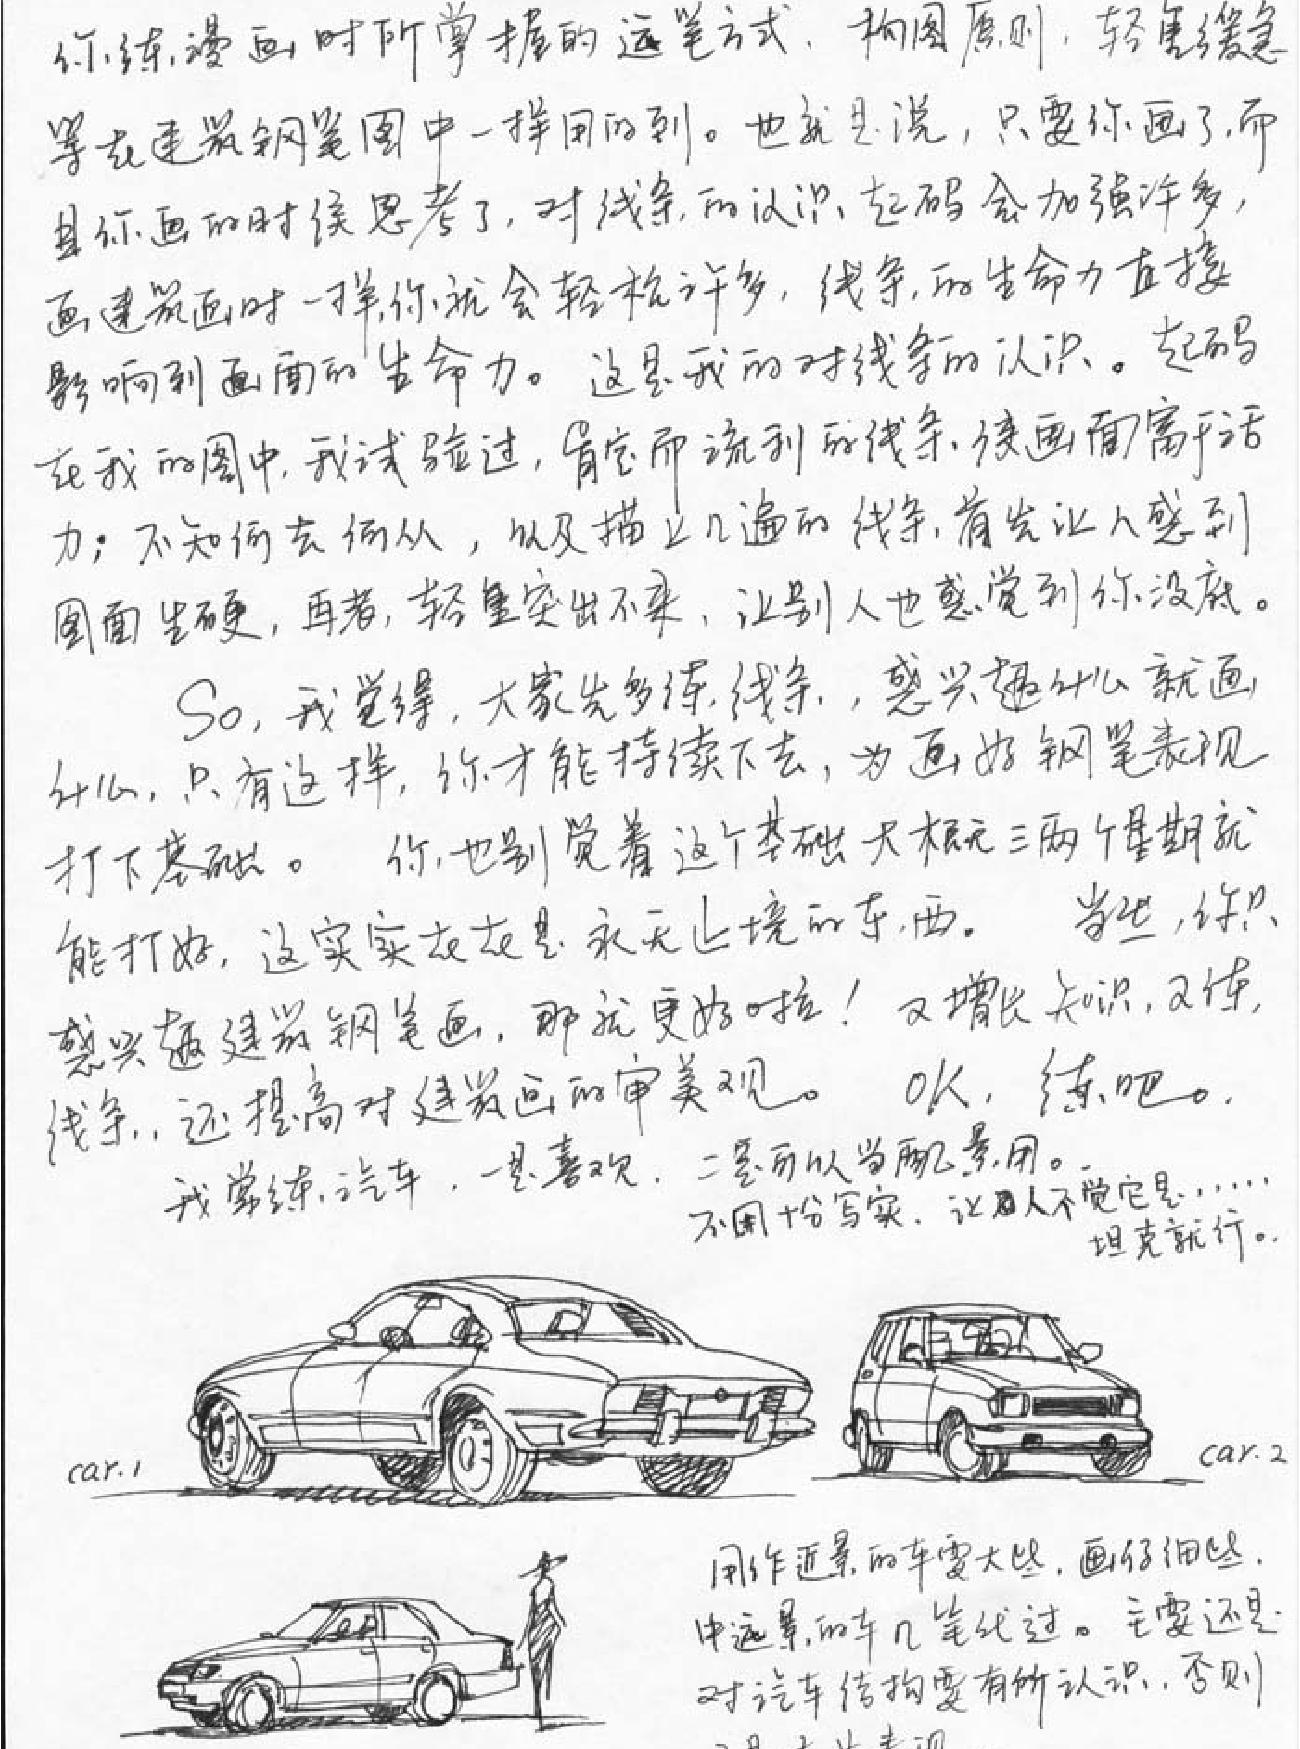 你练漫画时所掌握的运笔方式、构图原则，轻重缓急
等在建筑钢笔图中一样用的到。也就是说，只要你画了，而
且你画的时侯思考了，对线条的认识起码会加强许多，
画建筑画时一样，你就会轻松许多，线条的生命力直接
影响到画面的生命力。这是我的对线条的认识。起码
在我的图中，我试验过，肯定而流利的线条，使画面富于活
力；不知何去何从，以及描上几遍的线条，首先让人感到
图面生硬，再者，轻重突出不来，让别人也感觉到你没底。
So，我觉得，大家先多练线条，感兴趣什么就画
什么，只有这样，你才能持续下去，为画好钢笔表现
打下基础。 你也别觉着这个基础大概三两个星期就
能打好，这实实在在是永无止境的东西。 当然，你只
感兴趣建筑钢笔画，那就更好啦！又增长知识，又练
线条，还提高对建筑画的审美观。 OK，练吧。
我常练汽车，一是喜欢，二是可以当配景用。
不用十分写实，让人不觉它是……
坦克就行。
car.1
car.2
用作近景的车要大些，画仔细些，
中远景的车几笔代过。主要还是
对汽车结构要有所认识，否则